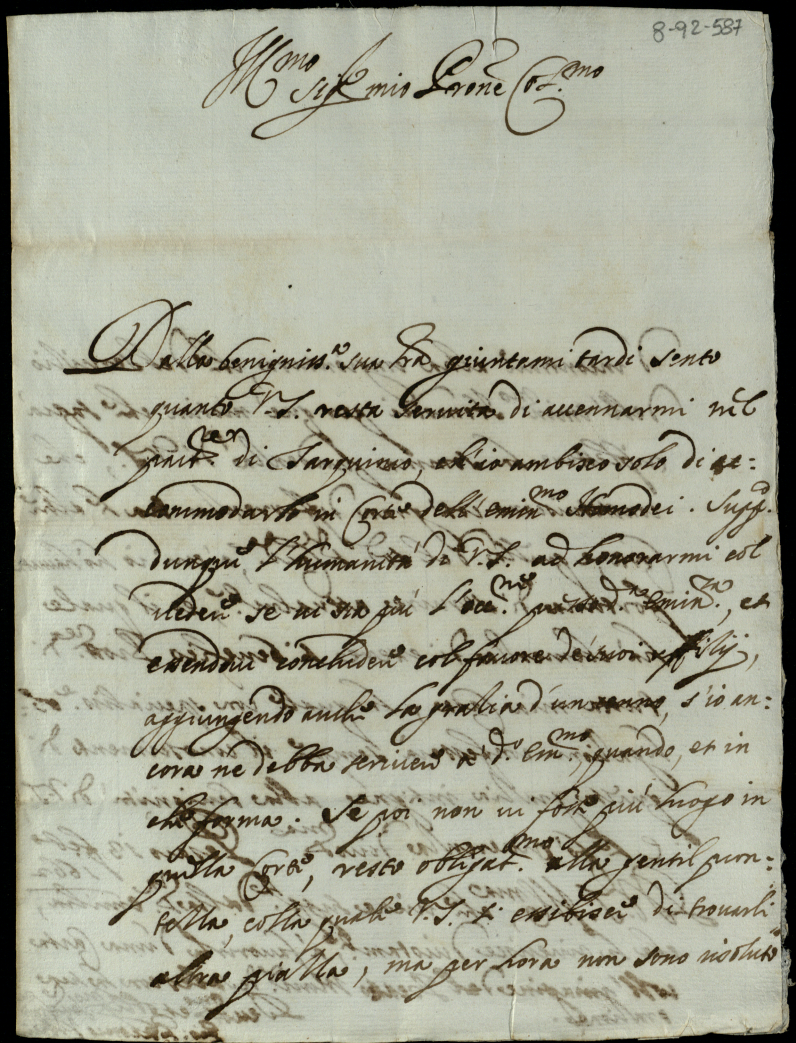 8-92-587
Ill.mo
Sig.r mio P.rone Col.mo
Dalla benigniss.a sua tra giuntami tardi sento
quanto V.S. resta servita di accennarmi nel
partic.re di Tarquinio, ch'io ambisco solo di ac=
commodarlo in Corte dell'emin.mo Homodei. Supp.co
dunque l'humanità di V.S. ad honorarmi col
vedere se vi sia più l'occ.ne presso d.a Emin.a, et
essendovi concludere col favore de' suoi uffitij,
aggiungendo anche la gratia d'un cenno, s'io an=
cora ne debba scrivere a d.o Em.mo, quando, et in
che forma. Se poi non vi fosse più luogo in
quella Corte, resto obligat.mo alla gentil pron=
tezza, colla quale V.S. si essibisce di trovarli
altra piazza, ma per hora non sono risoluto